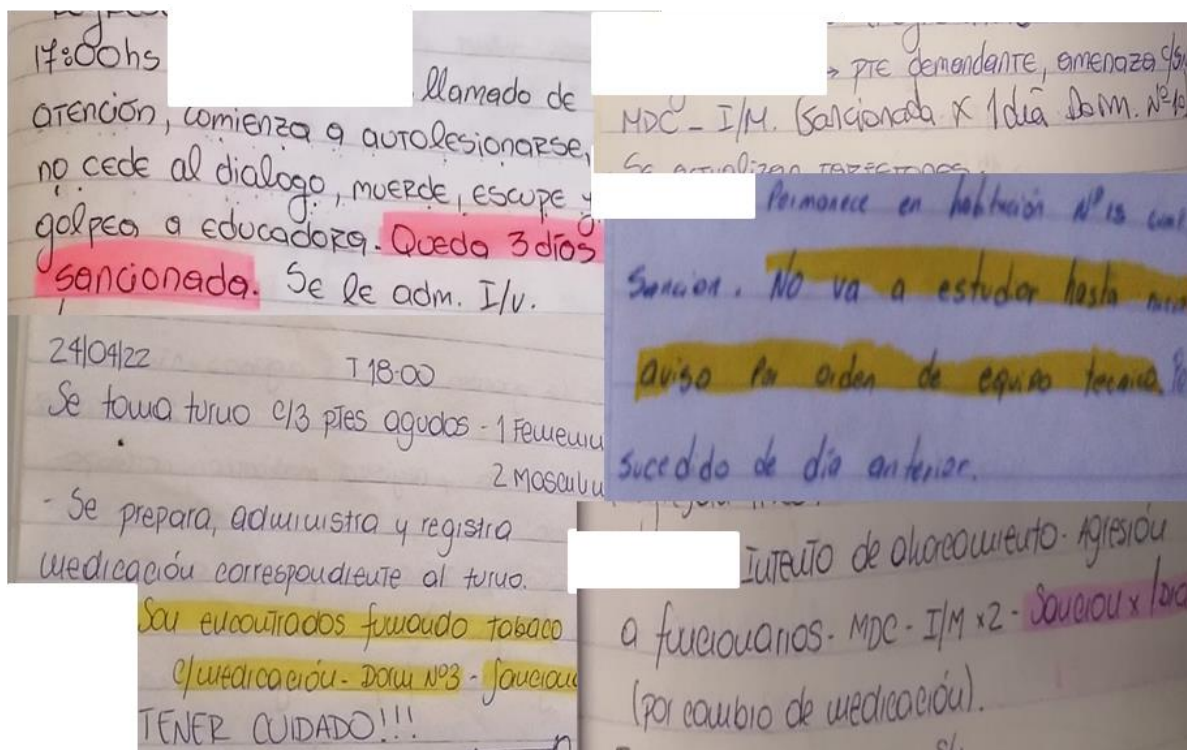 17:00hs
llamado de
atención, comienza a autolesionarse,
no cede al dialogo, muerde, escupe y
golpea a educadora. Queda 3 días
sancionada. Se le adm. I/v.
24/04/22 T 18:00
Se toma turno c/3 ptes agudos - 1 Femenin
2 Mascul
- Se prepara, administra y registra
medicación correspondiente al turno.
Son encontrados fumando tabaco
c/medicación - Dorm Nº3 - Sancion
TENER CUIDADO!!!
→ PTE demandante, amenaza
MDC - I/M. (Sancionada x 1 día Dorm. Nº
Se actualizan tarjetones.
Permanece en habitación Nº 15
Sancion. No va a estudar hasta
aviso Por orden de equipo tecnico.
sucedido de día anterior.
Intento de ahorcamiento - Agresión
a funcionarios - MDC - I/M x2 - Sancion x 1
(por cambio de medicación).